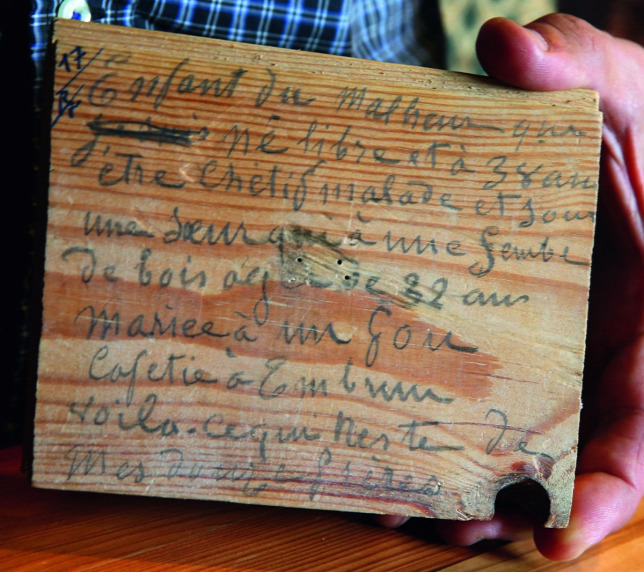 17/
Enfant du malheur que
né libre et à 38 an
être chétif malade et
une sœur qui à une Gembe
de bois agée de 32 ans
Mariee à un fou
Cafetié à Embrun
voila ce qui Reste de
Mes douze frères